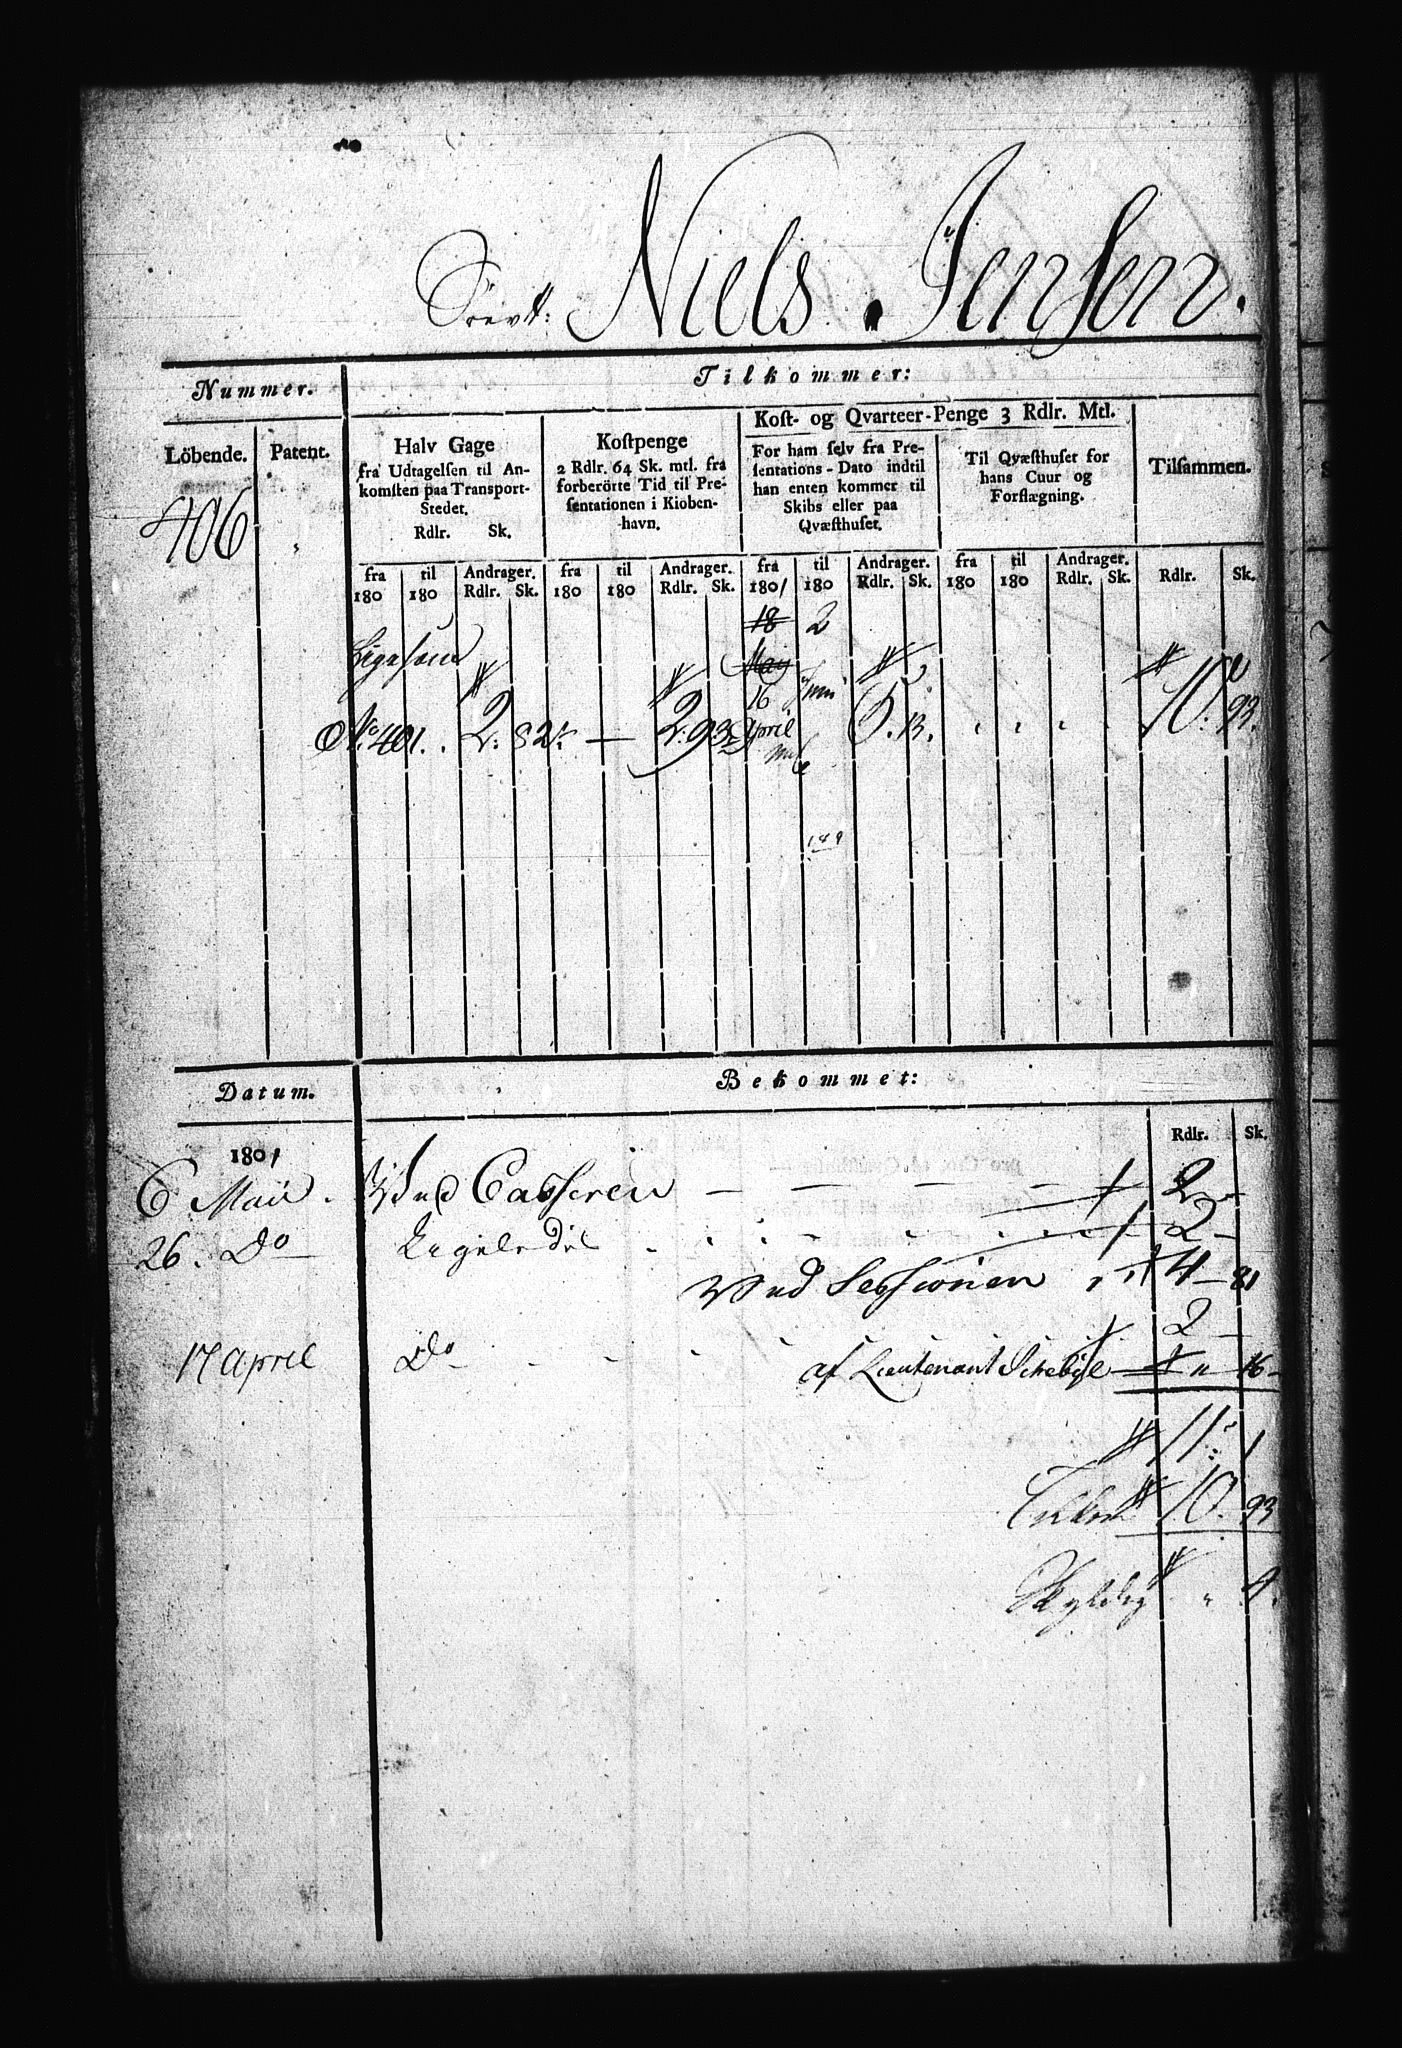 Niels Jensen.
Nummer.
Tilkommer:
Löbende.
Patent.
Halv Gage
fra Udtagelsen til An-
komsten paa Transport-
Stedet.
Rdlr. Sk.
Kostpenge
2 Rdlr. 64 Sk. mtl. fra
forberörte Tid til Pre-
sentationen i Kioben-
havn.
Kost- og Qvarteer-Penge 3 Rdlr. Mtl.
For ham selv fra Pre-
sentations-Dato indtil
han enten kommer til
Skibs eller paa
Qvæsthuset.
Til Qvæsthuset for
hans Cuur og
Forflægning.
Tilsammen.
fra 180 til 180 Andrager. Rdlr. Sk.
fra 180 til 180 Andrager. Rdlr. Sk.
fra 1801 til 180 Andrager. Rdlr. Sk.
fra 180 til 180 Andrager. Rdlr. Sk.
Rdlr. Sk.
406 "
18 2
Ligesom May
16 Juni
No. 401. 2: 82 — 2: 93 April 10. 93.
Datum.
Bekommet:
Rdlr. Sk.
1801
6 Maii. Ved Casseren — — — — 2 -
26. Do Ligeledes 2 -
Ved Sessionen 4 - 81
2 -
17 April Do af Lieutenant Schebye " 16 -
11: 1
10. 93
Skyldig " 4.